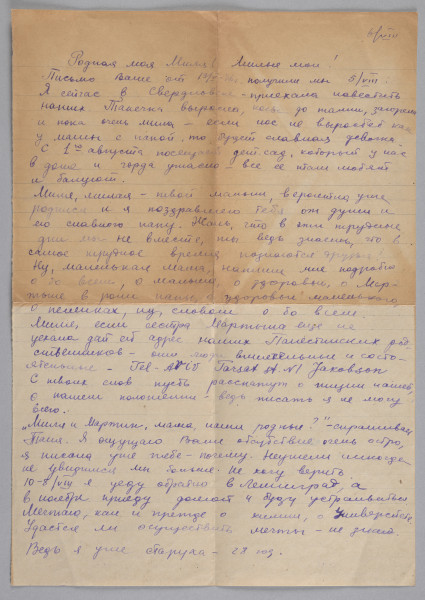 6/VIII
Родная моя Миля! Милые мои!
Письмо Ваше от получили мы 5/VIII.
Я сейчас в Свердловске - приехала навестить
наших. Танечка выросла, до талии,
и пока очень мила - если нос не вырастет как
у мамы с папой, то будет славная девочка.
С 1го августа посещает дет. сад, который у нас
в доме и горда ужасно - все ее там любят
и балуют.
Миля, милая - твой малыш, вероятно уже
родился и я поздравляю тебя от души и
его славного папу. Жаль, что в эти трудные
дни мы не вместе, ты ведь знаешь, что в
самое трудное время познаются друзья.
Ну, маленькая мама, напиши мне подробно
о во всем, о малыше, о здоровье, о Мар-
тыне в роли папы, о здоровье маленького,
о пеленках, ну, словом о во всем.
Миля, если сестра Мартына еще не
уехала дай ей адрес наших Палестинских род-
ственников - они люди внимательные и состо-
ятельные - Tel-Aviv Jakobson
С твоих слов пусть расскажут о жизни нашей,
о нашем положении - ведь писать я не могу
всего.
"Миля и Мартын, мама, наши родные?" - спрашивает
Таня. Я ощущаю Ваше отсутствие очень остро,
я писала уже тебе - почему. Неужели никогда
не увидимся мы больше. Не хочу верить.
10-8/VIII я уеду обратно в Ленинград, а
в ноябре приеду домой и буду устраиваться
Мечтаю, как и прежде о химии, о Университете
Удастся ли осуществить мечты - не знаю.
Ведь я уже старуха - 28 год.